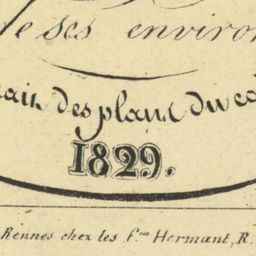 de ses environ
rait des plans du ca
1829.
Rennes chez les f.res Hermant, R.